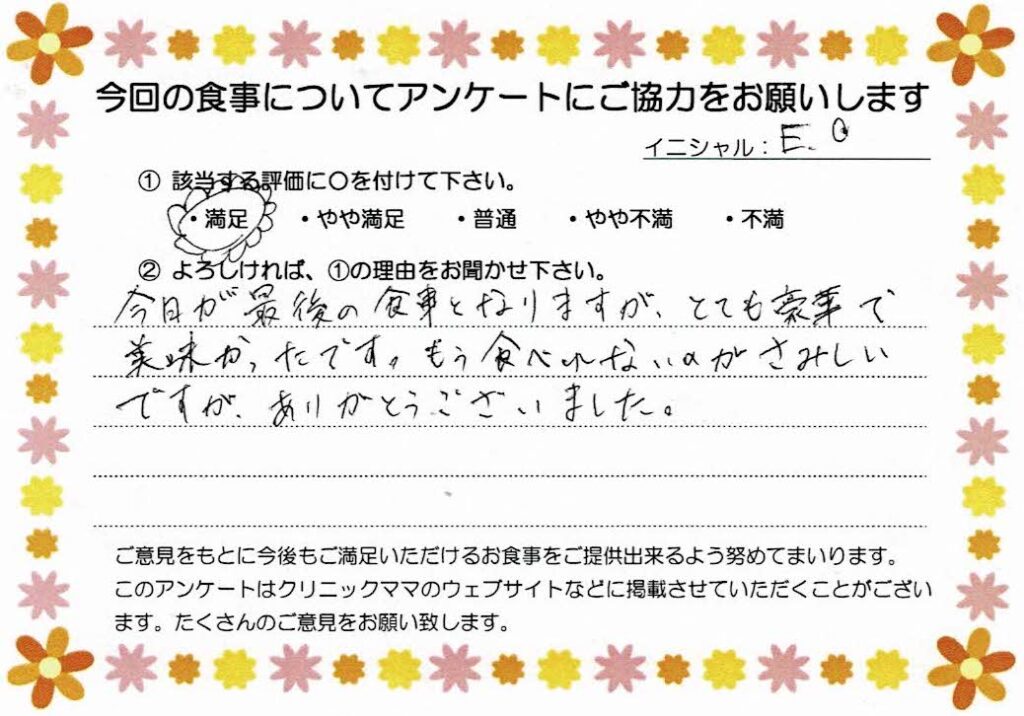 今回の食事についてアンケートにご協力をお願いします
イニシャル：E.O
① 該当する評価に〇を付けて下さい。
・満足 ・やや満足 ・普通 ・やや不満 ・不満
② よろしければ、①の理由をお聞かせ下さい。
今日が最後の食事となりますが、とても豪華で
美味かったです。もう食べれないのがさみしい
ですが、ありがとうございました。
ご意見をもとに今後もご満足いただけるお食事をご提供出来るよう努めてまいります。
このアンケートはクリニックママのウェブサイトなどに掲載させていただくことがござい
ます。たくさんのご意見をお願い致します。